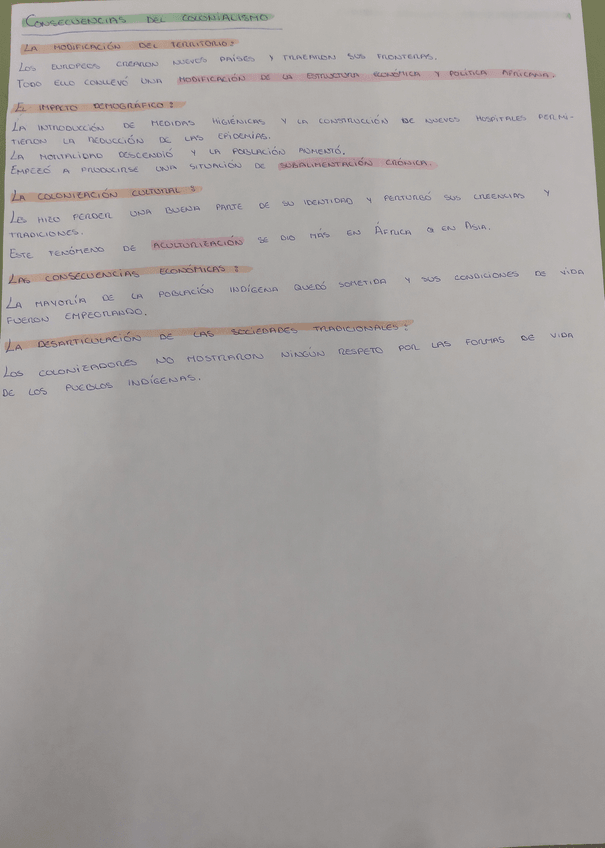 CONSECUENCIAS DEL COLONIALISMO
LA MODIFICACIÓN DEL TERRITORIO:
LOS EUROPEOS CREARON NUEVOS PAÍSES Y TRAZARON SUS FRONTERAS.
TODO ELLO CONLLEVÓ UNA MODIFICACIÓN DE LA ESTRUCTURA ECONÓMICA Y POLÍTICA AFRICANA.
EL IMPACTO DEMOGRÁFICO:
LA INTRODUCCIÓN DE MEDIDAS HIGIÉNICAS Y LA CONSTRUCCIÓN DE NUEVOS HOSPITALES PERMI-
TIERON LA REDUCCIÓN DE LAS EPIDEMIAS.
LA MORTALIDAD DESCENDIÓ Y LA POBLACIÓN AUMENTÓ.
EMPEZÓ A PRODUCIRSE UNA SITUACIÓN DE SUBALIMENTACIÓN CRÓNICA.
LA COLONIZACIÓN CULTURAL:
LES HIZO PERDER UNA BUENA PARTE DE SU IDENTIDAD Y PERTURBÓ SUS CREENCIAS Y
TRADICIONES.
ESTE FENÓMENO DE ACULTURIZACIÓN SE DIO MÁS EN ÁFRICA Q EN ASIA.
LAS CONSECUENCIAS ECONÓMICAS:
LA MAYORÍA DE LA POBLACIÓN INDÍGENA QUEDÓ SOMETIDA Y SUS CONDICIONES DE VIDA
FUERON EMPEORANDO.
LA DESARTICULACIÓN DE LAS SOCIEDADES TRADICIONALES:
LOS COLONIZADORES NO MOSTRARON NINGÚN RESPETO POR LAS FORMAS DE VIDA
DE LOS PUEBLOS INDÍGENAS.